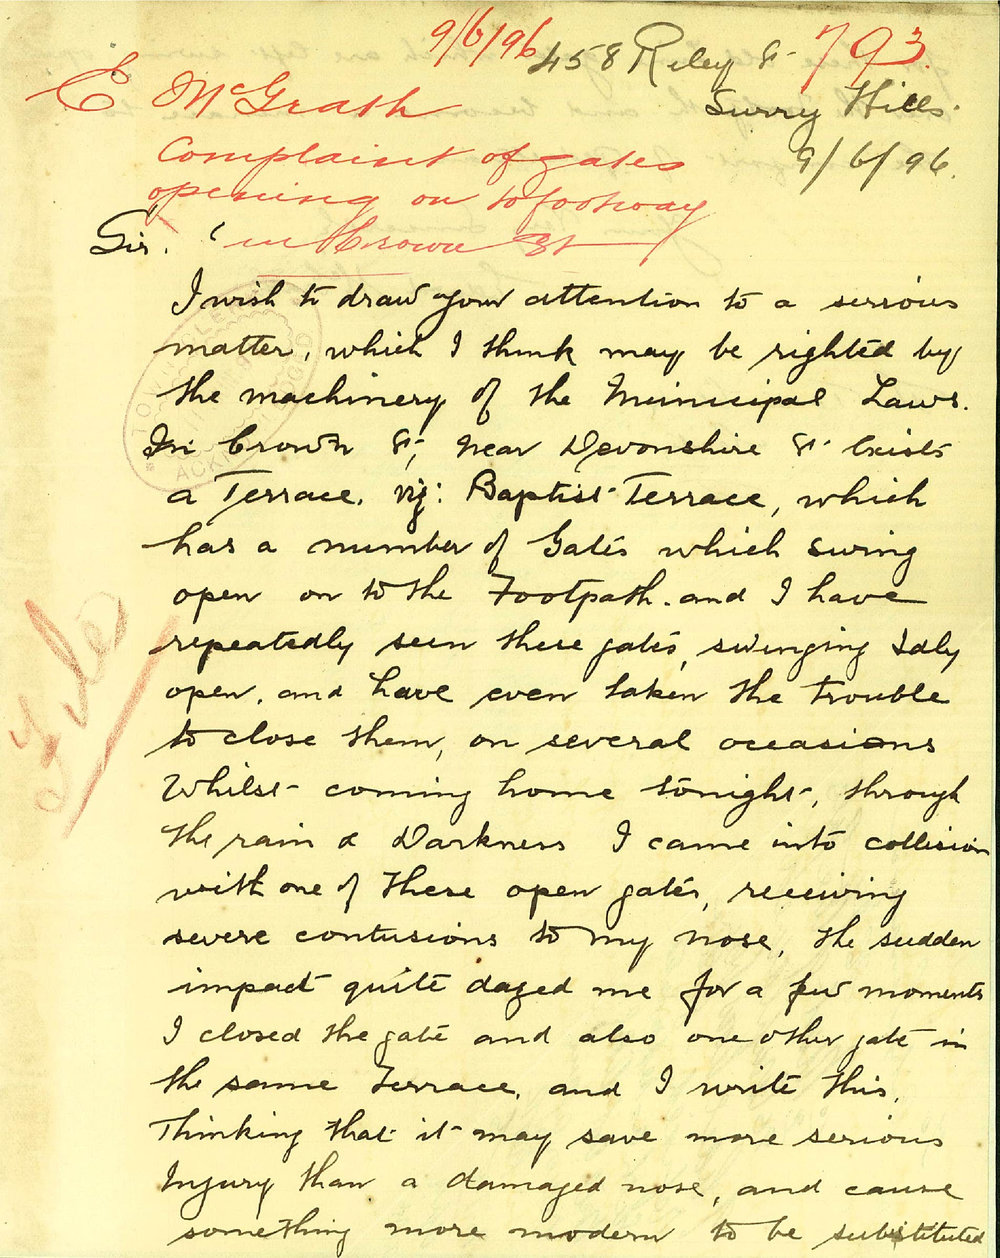 9/6/96
458 Riley St 793.
E McGrath
Surry Hills.
Complaint of gates
9/6/96.
opening on to footway
in Crown St
Sir,
I wish to draw your attention to a serious
matter, which I think may be righted by
the machinery of the Municipal Laws.
In Crown St, near Devonshire St Exists
a Terrace. viz: Baptist Terrace, which
has a number of Gates which swing
open on to the Footpath. and I have
repeatedly seen these gates, swinging Idly
open, and have even taken the trouble
to close them, on several occasions
Whilst coming home tonight, through
the rain & Darkness I came into collision
with one of these open gates, receiving
severe contusions to my nose, the sudden
impact quite dazed me for a few moments
I closed the gate and also one other gate in
the same Terrace, and I write this,
Thinking that it may save more serious
Injury than a damaged nose, and cause
something more modern to be substituted
File
TOWN CLERK
ACK